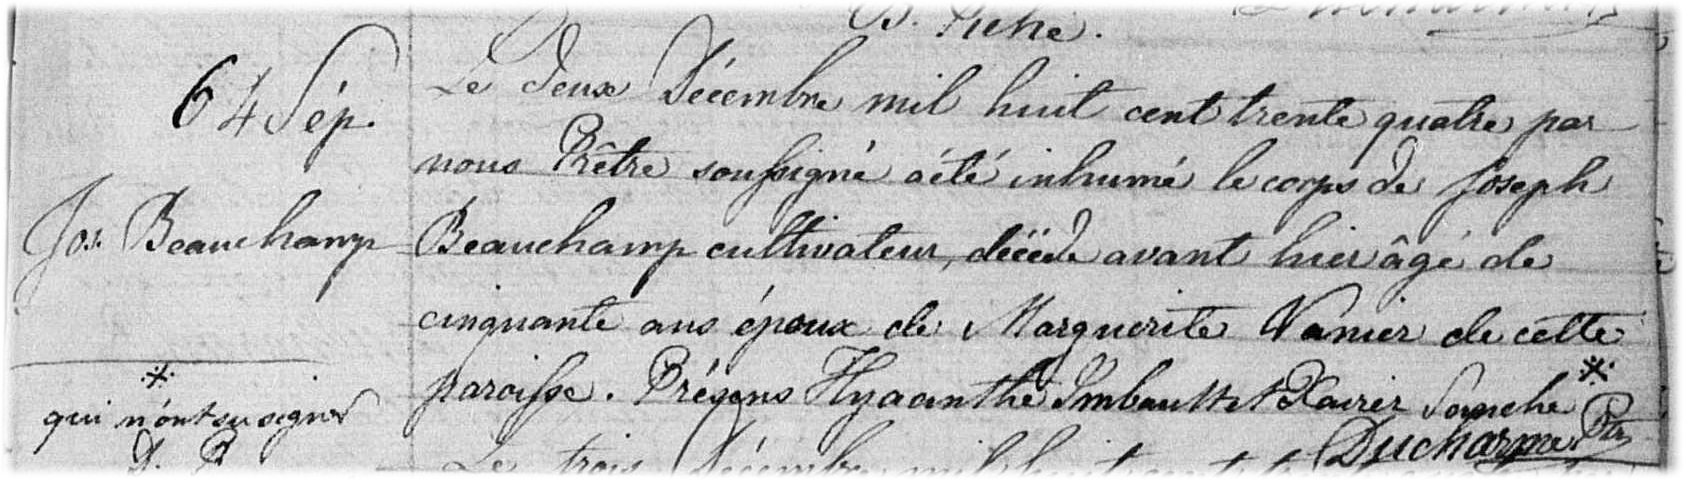 B. Piché.
64 Sép.
Jos. Beauchamp
Le deux Décembre mil huit cent trente quatre par
nous Prêtre soussigné a été inhumé le corps de Joseph
Beauchamp cultivateur, décédé avant hier âgé de
cinquante ans époux de Marguerite Vanier de cette
paroisse. Présens Hyacinthe Imbault et Xavier ※
Ducharme Ptre
※
qui n'ont su signer
Le trois Décembre mil huit cent